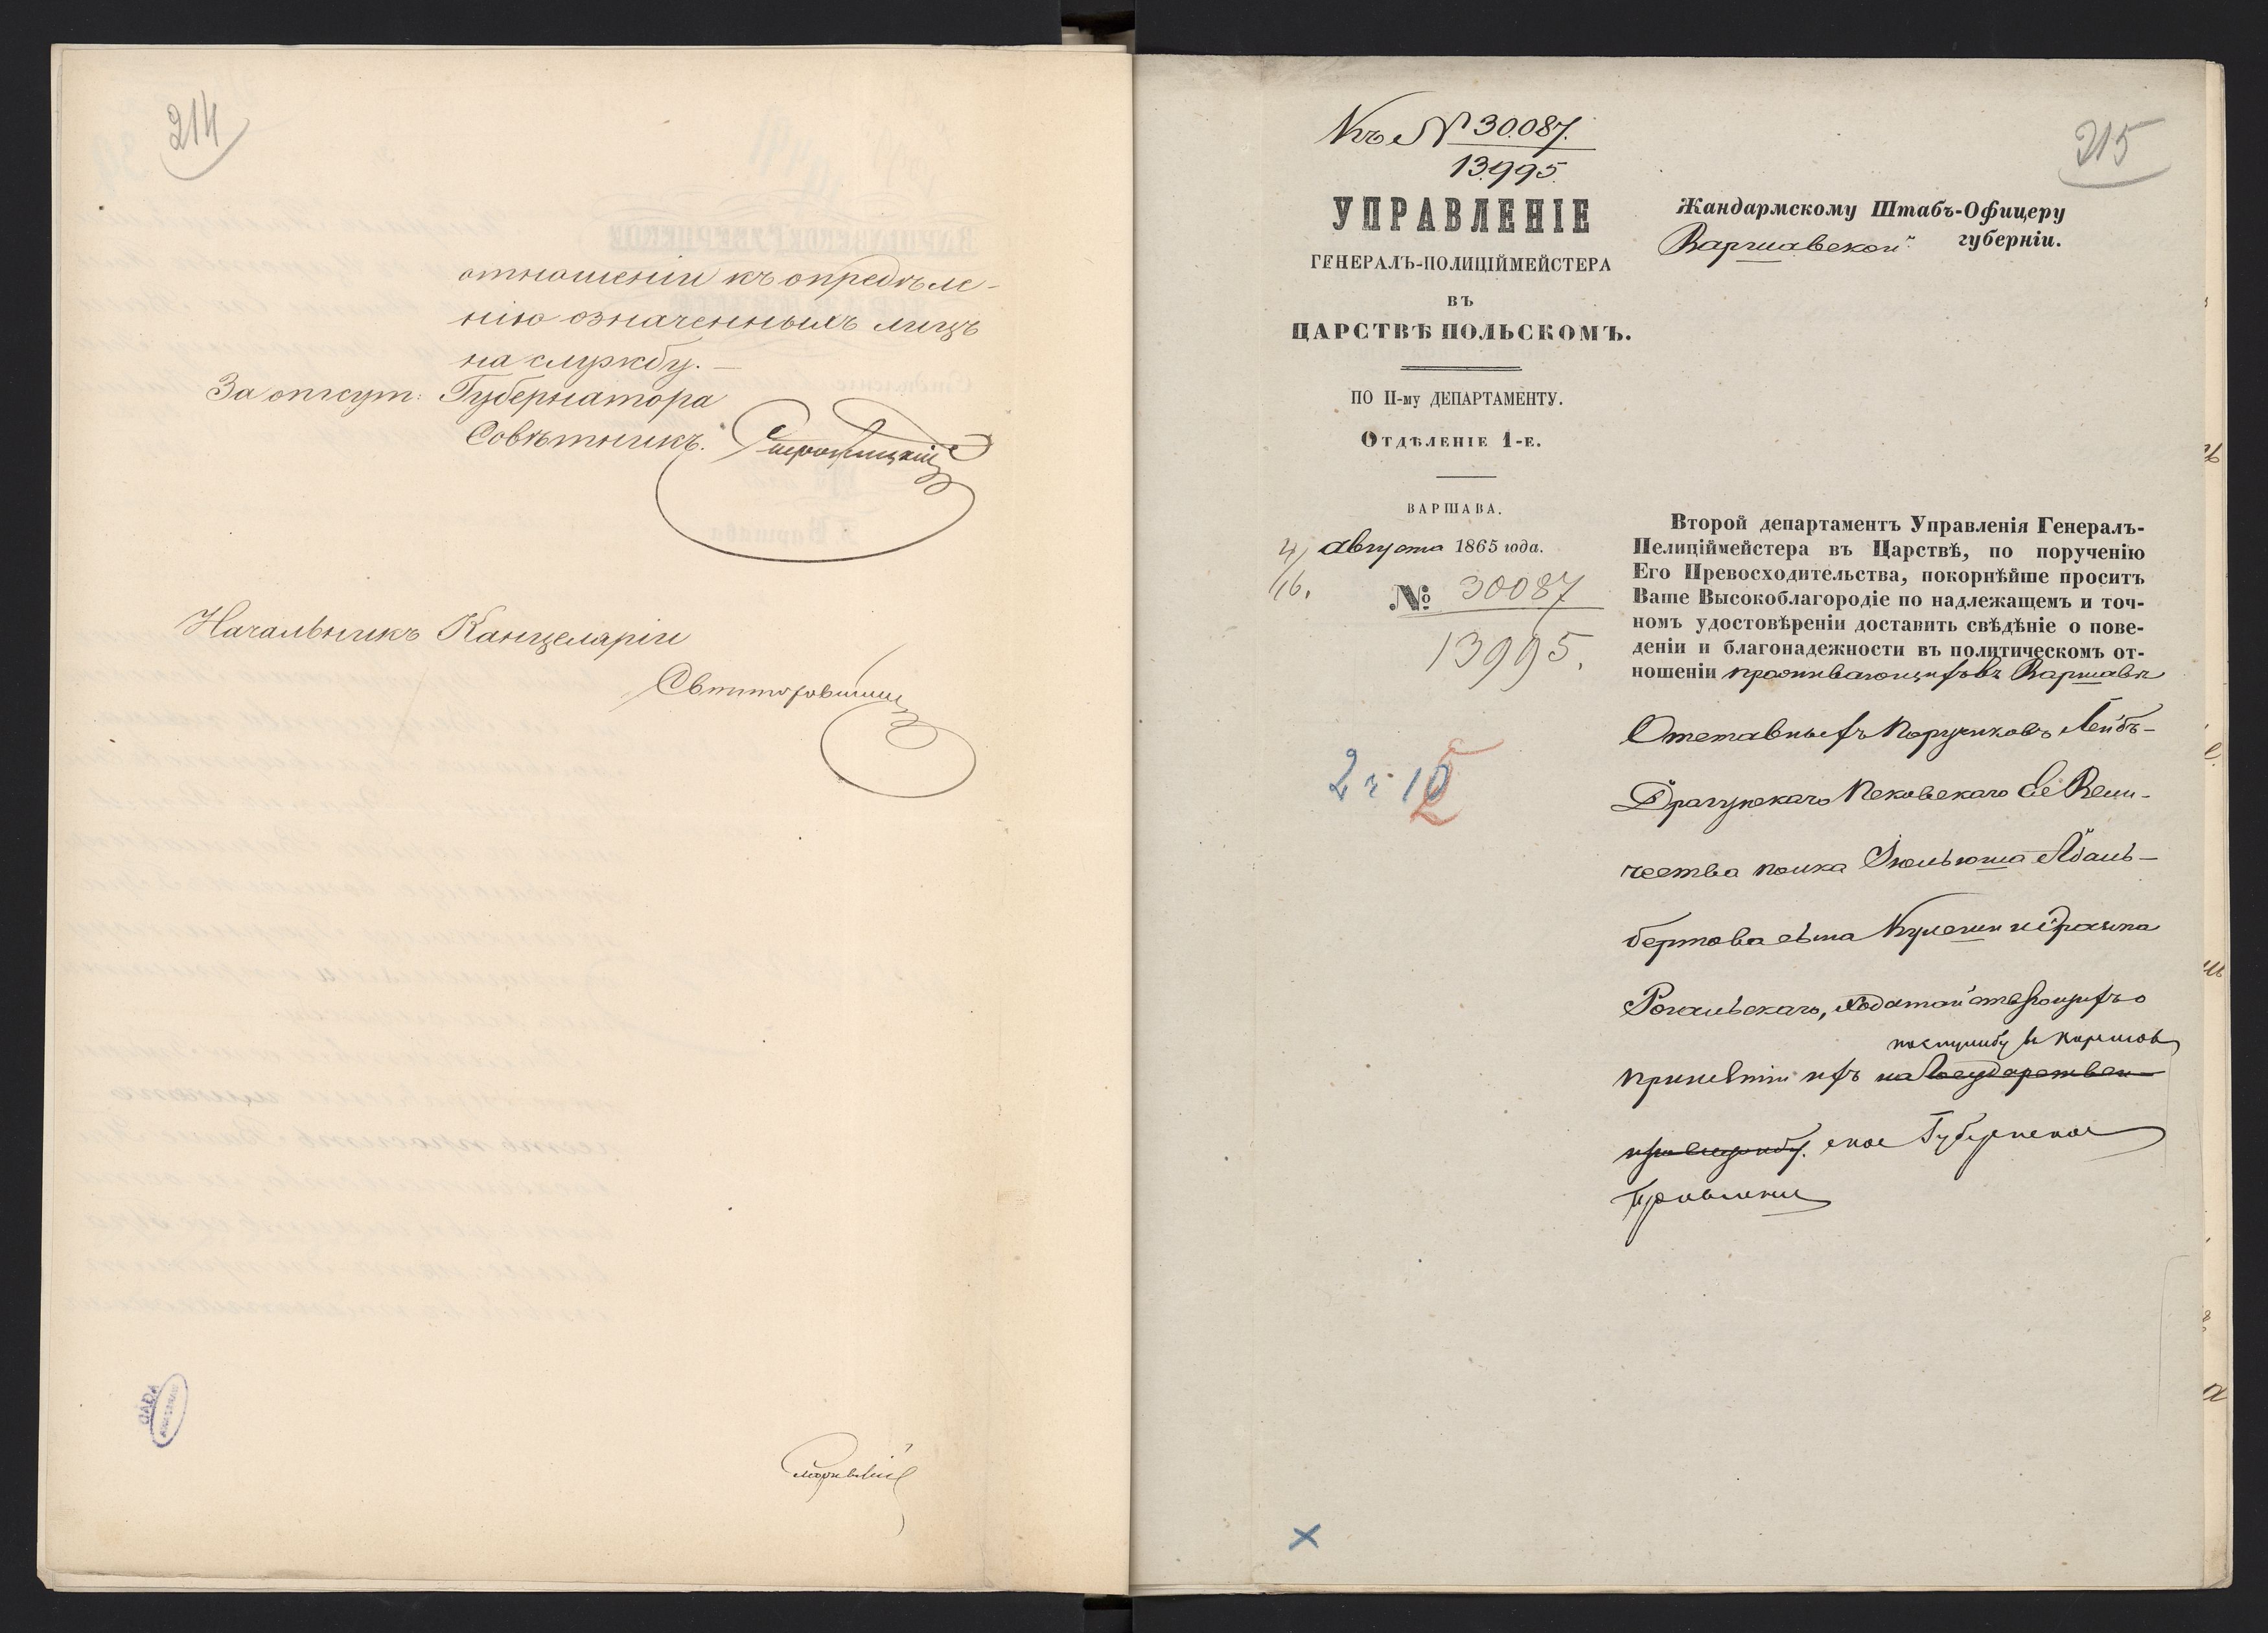 214
отношеніи къ опредѣле-
нію означенныхъ лицъ
на службу. —
За отсут: Губернатора
Совѣтникъ.
Начальникъ Канцеляріи
Къ № 30087.
13995.
215
УПРАВЛЕНІЕ
ГЕНЕРАЛЪ-ПОЛИЦІЙМЕЙСТЕРА
ВЪ
ЦАРСТВѢ ПОЛЬСКОМЪ.
ПО II-му ДЕПАРТАМЕНТУ.
Отдѣленіе 1-е.
ВАРШАВА.
4/ августа 1865 года.
16.
№ 30087
13995.
Жандармскому Штабъ-Офицеру
Варшавской губерніи.
Второй департаментъ Управленія Генералъ-
Пелиціймейстера въ Царствѣ, по порученію
Его Превосходительства, покорнѣйше проситъ
Ваше Высокоблагородіе по надлежащемъ и точ-
номъ удостовѣреніи доставить свѣдѣніе о пове-
деніи и благонадежности въ политическомъ от-
ношеніи проживающихъ въ Варшавѣ
Отставныхъ Поручиковъ Лейбъ-
Драгунскаго Псковскаго Ея Вели-
чества полка Юльюша Адаль-
бертова сына Кулеши и
Рогальскаго, ходатайствующихъ о
на службу въ
принятіи ихъ на Государствен-
службу. ское Губернское
Правленіе